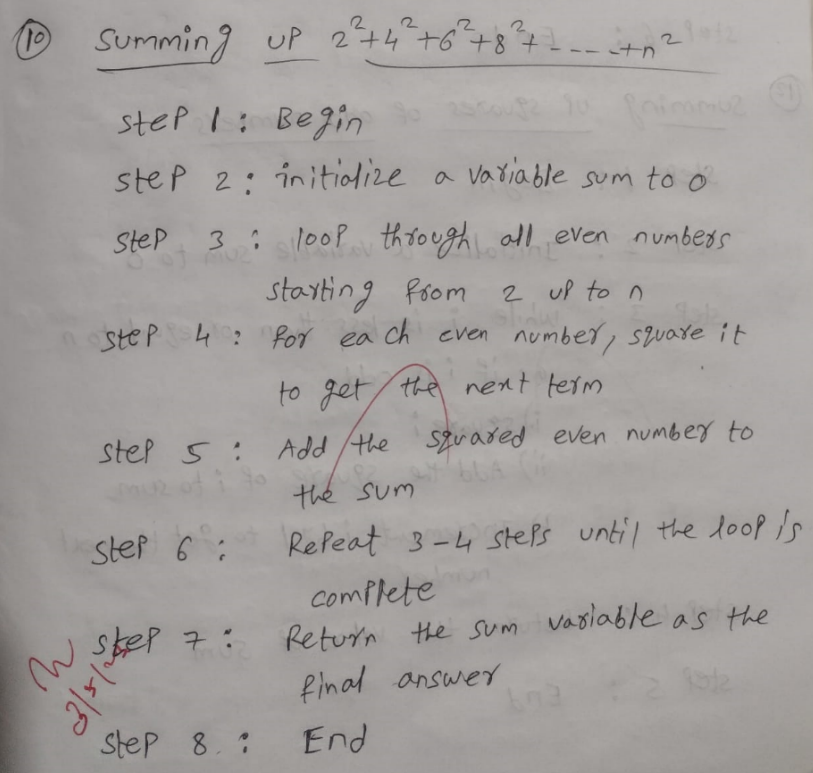 10 Summing up 2²+4²+6²+8²+----+n²
step 1 : Begin
step 2 : initialize a variable sum to 0
step 3 : loop through all even numbers
starting from 2 up to n
step 4 : for each even number, square it
to get the next term
step 5 : Add the squared even number to
the sum
step 6 : Repeat 3-4 steps until the loop is
complete
step 7 : Return the sum variable as the
final answer
step 8 : End